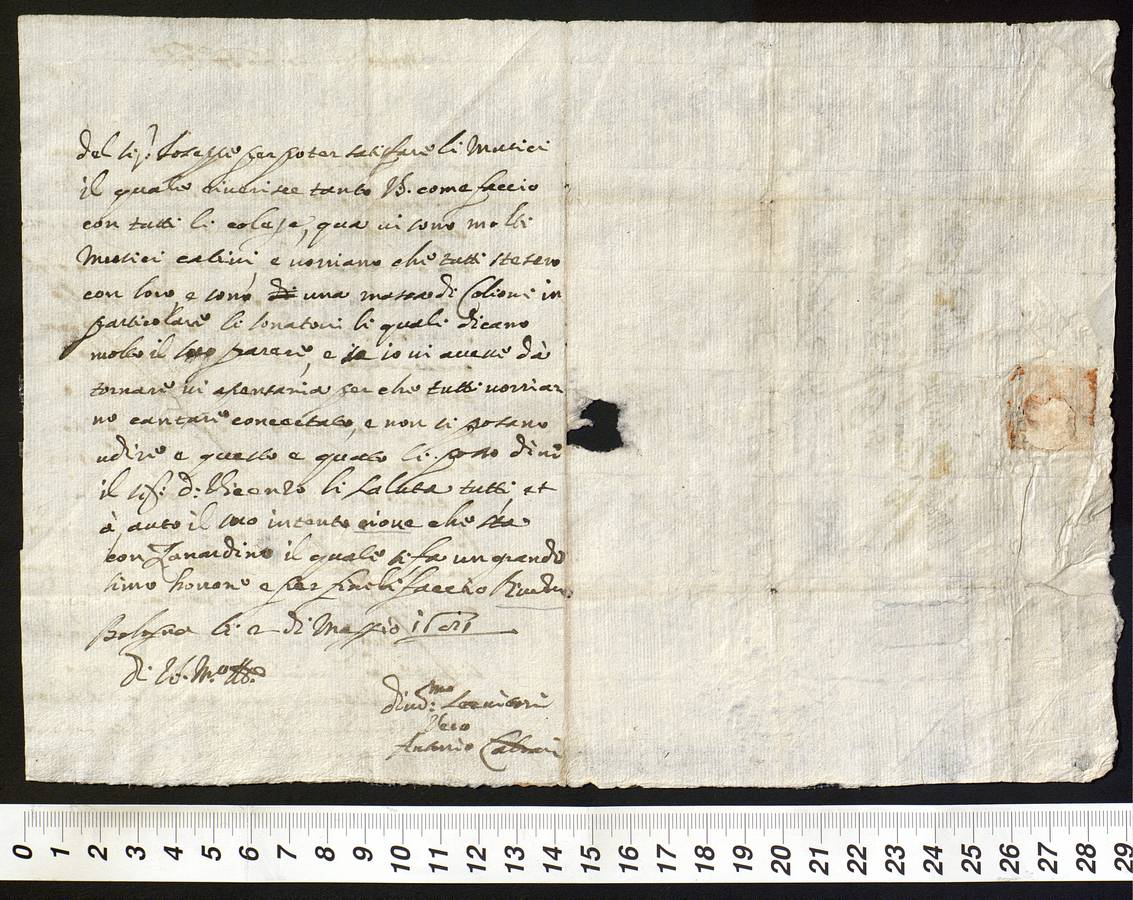 del sig.r Ioseffo per poter satisfare li Musici
il quale riverisce tanto VS. come faccio
con tutti li colege, qua vi sono molti
Musici cativi, e vorriano che tutti stesero
con loro, e sono di una massa di Colioni in
particolare li sonatori li quali dicano
molto il loro parere, e se io vi avesse dà
tornare vi asentaria per che tutti vorrian
no cantare concertato, e non si posano
udire e questo e quato li posso dire
il sig.r D. Vicenzo li saluta tutti, et
à auto il suo intento cioue che sta
con Zanardino il quale si fa un grandi
simo honore e per fine li faccio
Bologna li 2 di Maggio
di VS. M.to
mo
Servitore
Vero
Antonio
0 1 2 3 4 5 6 7 8 9 10 11 12 13 14 15 16 17 18 19 20 21 22 23 24 25 26 27 28 29